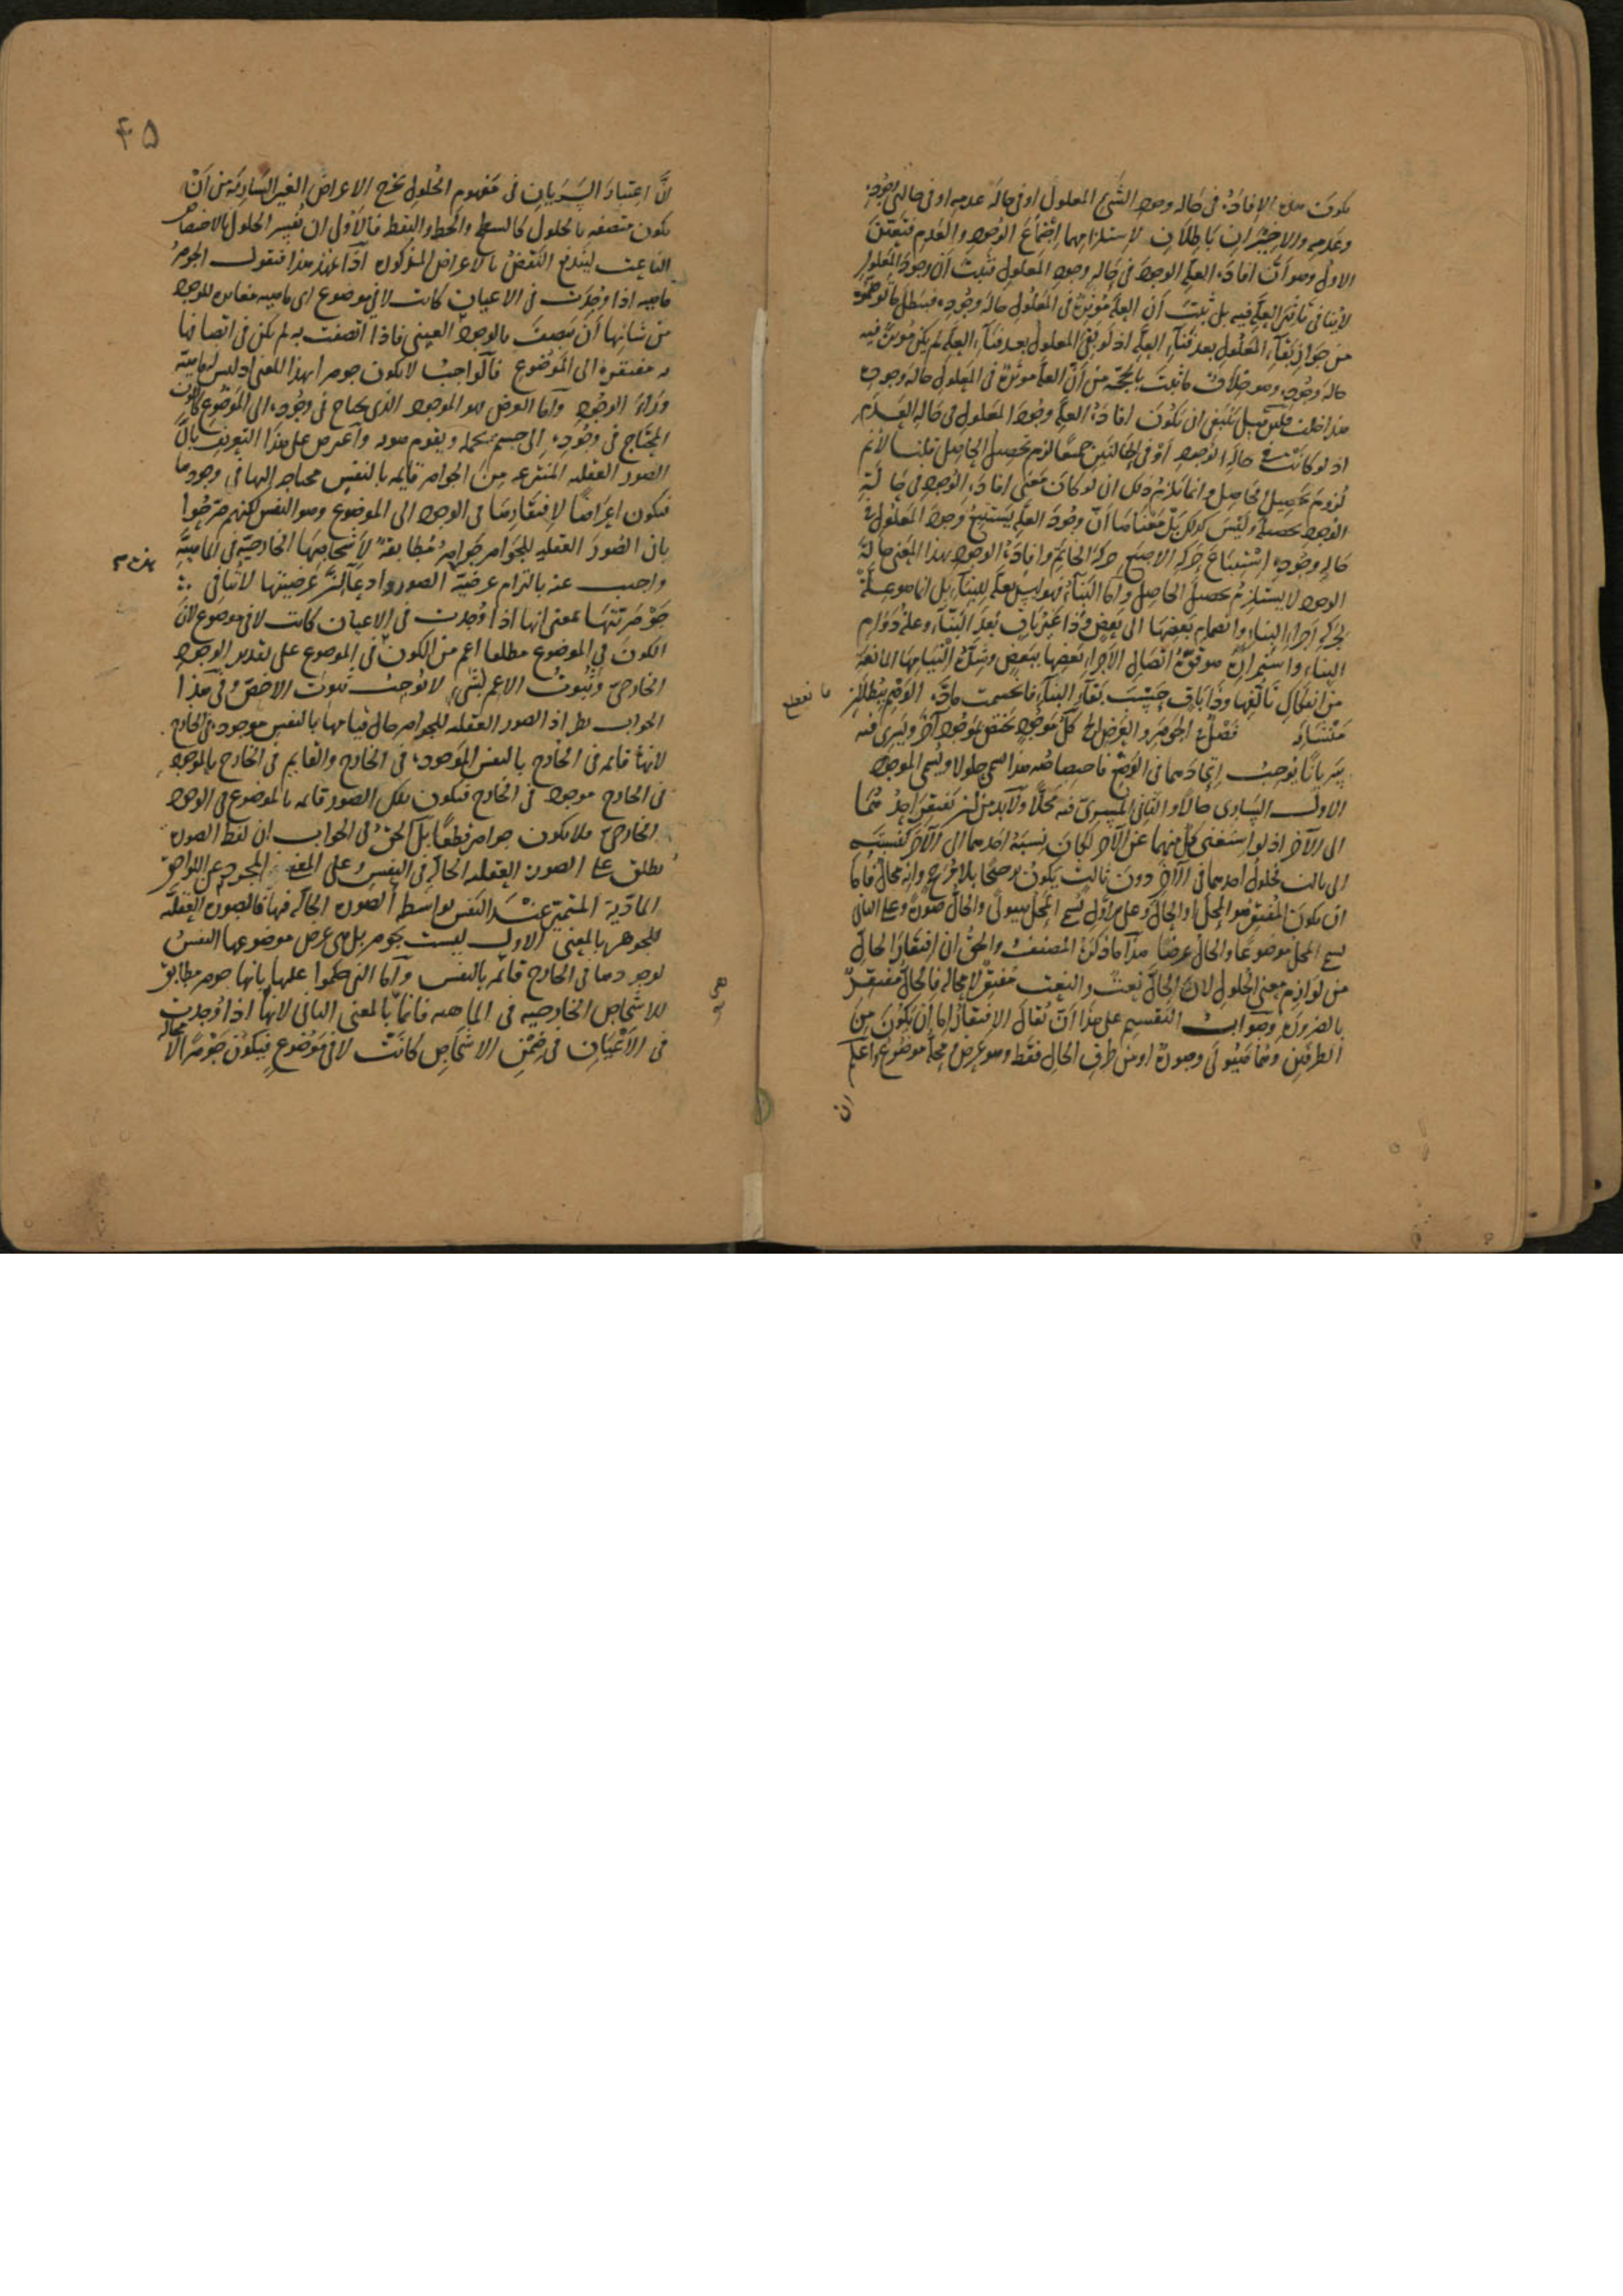 يكون هذه الإفادة في حالة وجود الشيء المعلول او في حالة عدمه او في حالتي وجوده
وعدمه والاخيران باطلان لاستلزامهما اجتماع الوجود والعدم فتعين
الاول وهو ان افادة العلة الوجود في حالة وجود المعلول فثبت ان وجود المعلول
لا ينافي تأثير العلة فيه بل ثبت ان العلة مؤثرة في المعلول حالة وجوده فبطل ما توهموه
من جواز بقاء المعلول بعد فناء العلة اذ لو بقي المعلول بعد فناء العلة لم يكن مؤثرة فيه
حالة وجوده وهو خلاف ما ثبت بالحجة من ان العلة مؤثرة في المعلول حالة وجوده
هذا خلف فلئن قيل ينبغي ان يكون افادة العلة وجود المعلول في حالة العدم
اذ لو كانت في حالة الوجود او في الحالتين جميعا لزم تحصيل الحاصل قلنا لا نم
لزوم تحصيل الحاصل وانما يلزم ذلك ان لو كان معنى افادة الوجود في حالة
الوجود تحصيله وليس كذلك بل معناها ان وجود العلة يستتبع وجود المعلول في
حالة وجوده استتباع حركة الاصبع حركة الخاتم وافادة الوجود بهذا المعنى حالة
الوجود لا يستلزم تحصيل الحاصل واما البناء فهو ليس بعلة للبناء بل انما هو علة
لحركة اجزاء البناء وانضمام بعضها الى بعض وذا غير باق بعد البناء وعلة دوام
البناء واستمراره هو قوة اتصال الاجزاء بعضها ببعض وشدة التيامها المانعة
من انفكاك تأليفها وذا باق حيث بقاء البناء فانحسمت مادة الوهم ببطلان
ما نعطع
منشأه فصل في الجوهر والعرض كل موجود يختص بموجود آخر ويسري فيه
سريانا يوجب اتحادهما في الوضع فاختصاصه هذا يسمى حلولا ويسمى الموجود
الاول الساري حالا والثاني المسري فيه محلا ولا بد من ان يفتقر احدهما
الى الآخر اذ لو استغنى كل منهما عن الآخر لكان نسبة احدهما الى الآخر كنسبته
الى ثالث فحلول احدهما في الآخر دون ثالث يكون ترجيحا بلا مرجح وانه محال فاما
ان يكون المفتقر هو المحل او الحال وعلى الاول يسمى المحل هيولى والحال صورة وعلى الثاني
يسمى المحل موضوعا والحال عرضا هذا ما ذكره المصنف والحق ان افتقار الحال
من لوازم معنى الحلول لان الحال نعت والنعت مفتقر لا محالة فالحال مفتقر
بالضرورة وصواب التقسيم على هذا ان يقال الافتقار اما ان يكون من
الطرفين وهما هيولى وصورة او من طرف الحال فقط وهو عرض ومحله موضوع واعلم
ان
٤٥
ان اعتبار السريان في مفهوم الحلول يخرج الاعراض الغير السارية من ان
يكون متصفة بالحلول كالسطح والخط والنقط فالاولى ان يفسر الحلول بالاختصاص
الناعت ليندفع النقض بالاعراض المذكورة اذا تمهد هذا فنقول الجوهر
ماهية اذا وجدت في الاعيان كانت لا في موضوع اي ماهية مغايرة للوجود
من شانها ان يتصف بالوجود العيني فاذا اتصفت به لم يكن في اتصافها
به مفتقرة الى الموضوع فالواجب لا يكون جوهرا بهذا المعنى اذ ليس له ماهية
وراء الوجود واما العرض هو الموجود الذي يحتاج في وجوده الى الموضوع كاللون
المحتاج في وجوده الى جسم يحله ويقوم هو به واعترض على هذا التعريف بان
الصور العقلية المنتزعة من الجواهر قائمة بالنفس محتاجة اليها في وجودها
فيكون اعراضا لافتقارها في الوجود الى الموضوع وهو النفس لكنهم صرحوا
بان الصور العقلية للجواهر جواهر مطابقة لاشخاصها الخارجية في الماهية
واجيب عنه بالتزام عرضية الصور وادعاء ان عرضيتها لا تنافي
جوهريتها بمعنى انها اذا وجدت في الاعيان كانت لا في موضوع لان
الكون في الموضوع مطلقا اعم من الكون في الموضوع على تقدير الوجود
الخارجي وثبوت الاعم لشيء لا يوجب ثبوت الاخص وفي هذا
الجواب نظر اذ الصور العقلية للجواهر حال قيامها بالنفس موجودة في الخارج
لانها قائمة في الخارج بالنفس الموجودة في الخارج والقايم في الخارج بالموجود
في الخارج موجود في الخارج فيكون تلك الصور قائمة بالموضوع في الوجود
الخارجي فلا يكون جواهر قطعا بل الحق في الجواب ان لفظ الصورة
يطلق على الصورة العقلية الحالة في النفس وعلى المعنى المجرد عن اللواحق
المادية المتميز عند النفس بواسطة الصورة الحالة فيها فالصورة العقلية
للجوهر بالمعنى الاول ليست بجوهر بل هي عرض موضوعها النفس
لوجودها في الخارج قائمة بالنفس واما التي حكموا عليها بانها جوهر مطابق
للاشخاص الخارجية في الماهية فانما بالمعنى الثاني لانها اذا وجدت
في الاعيان في ضمن الاشخاص كانت لا في موضوع فيكون جوهرا لا محالة